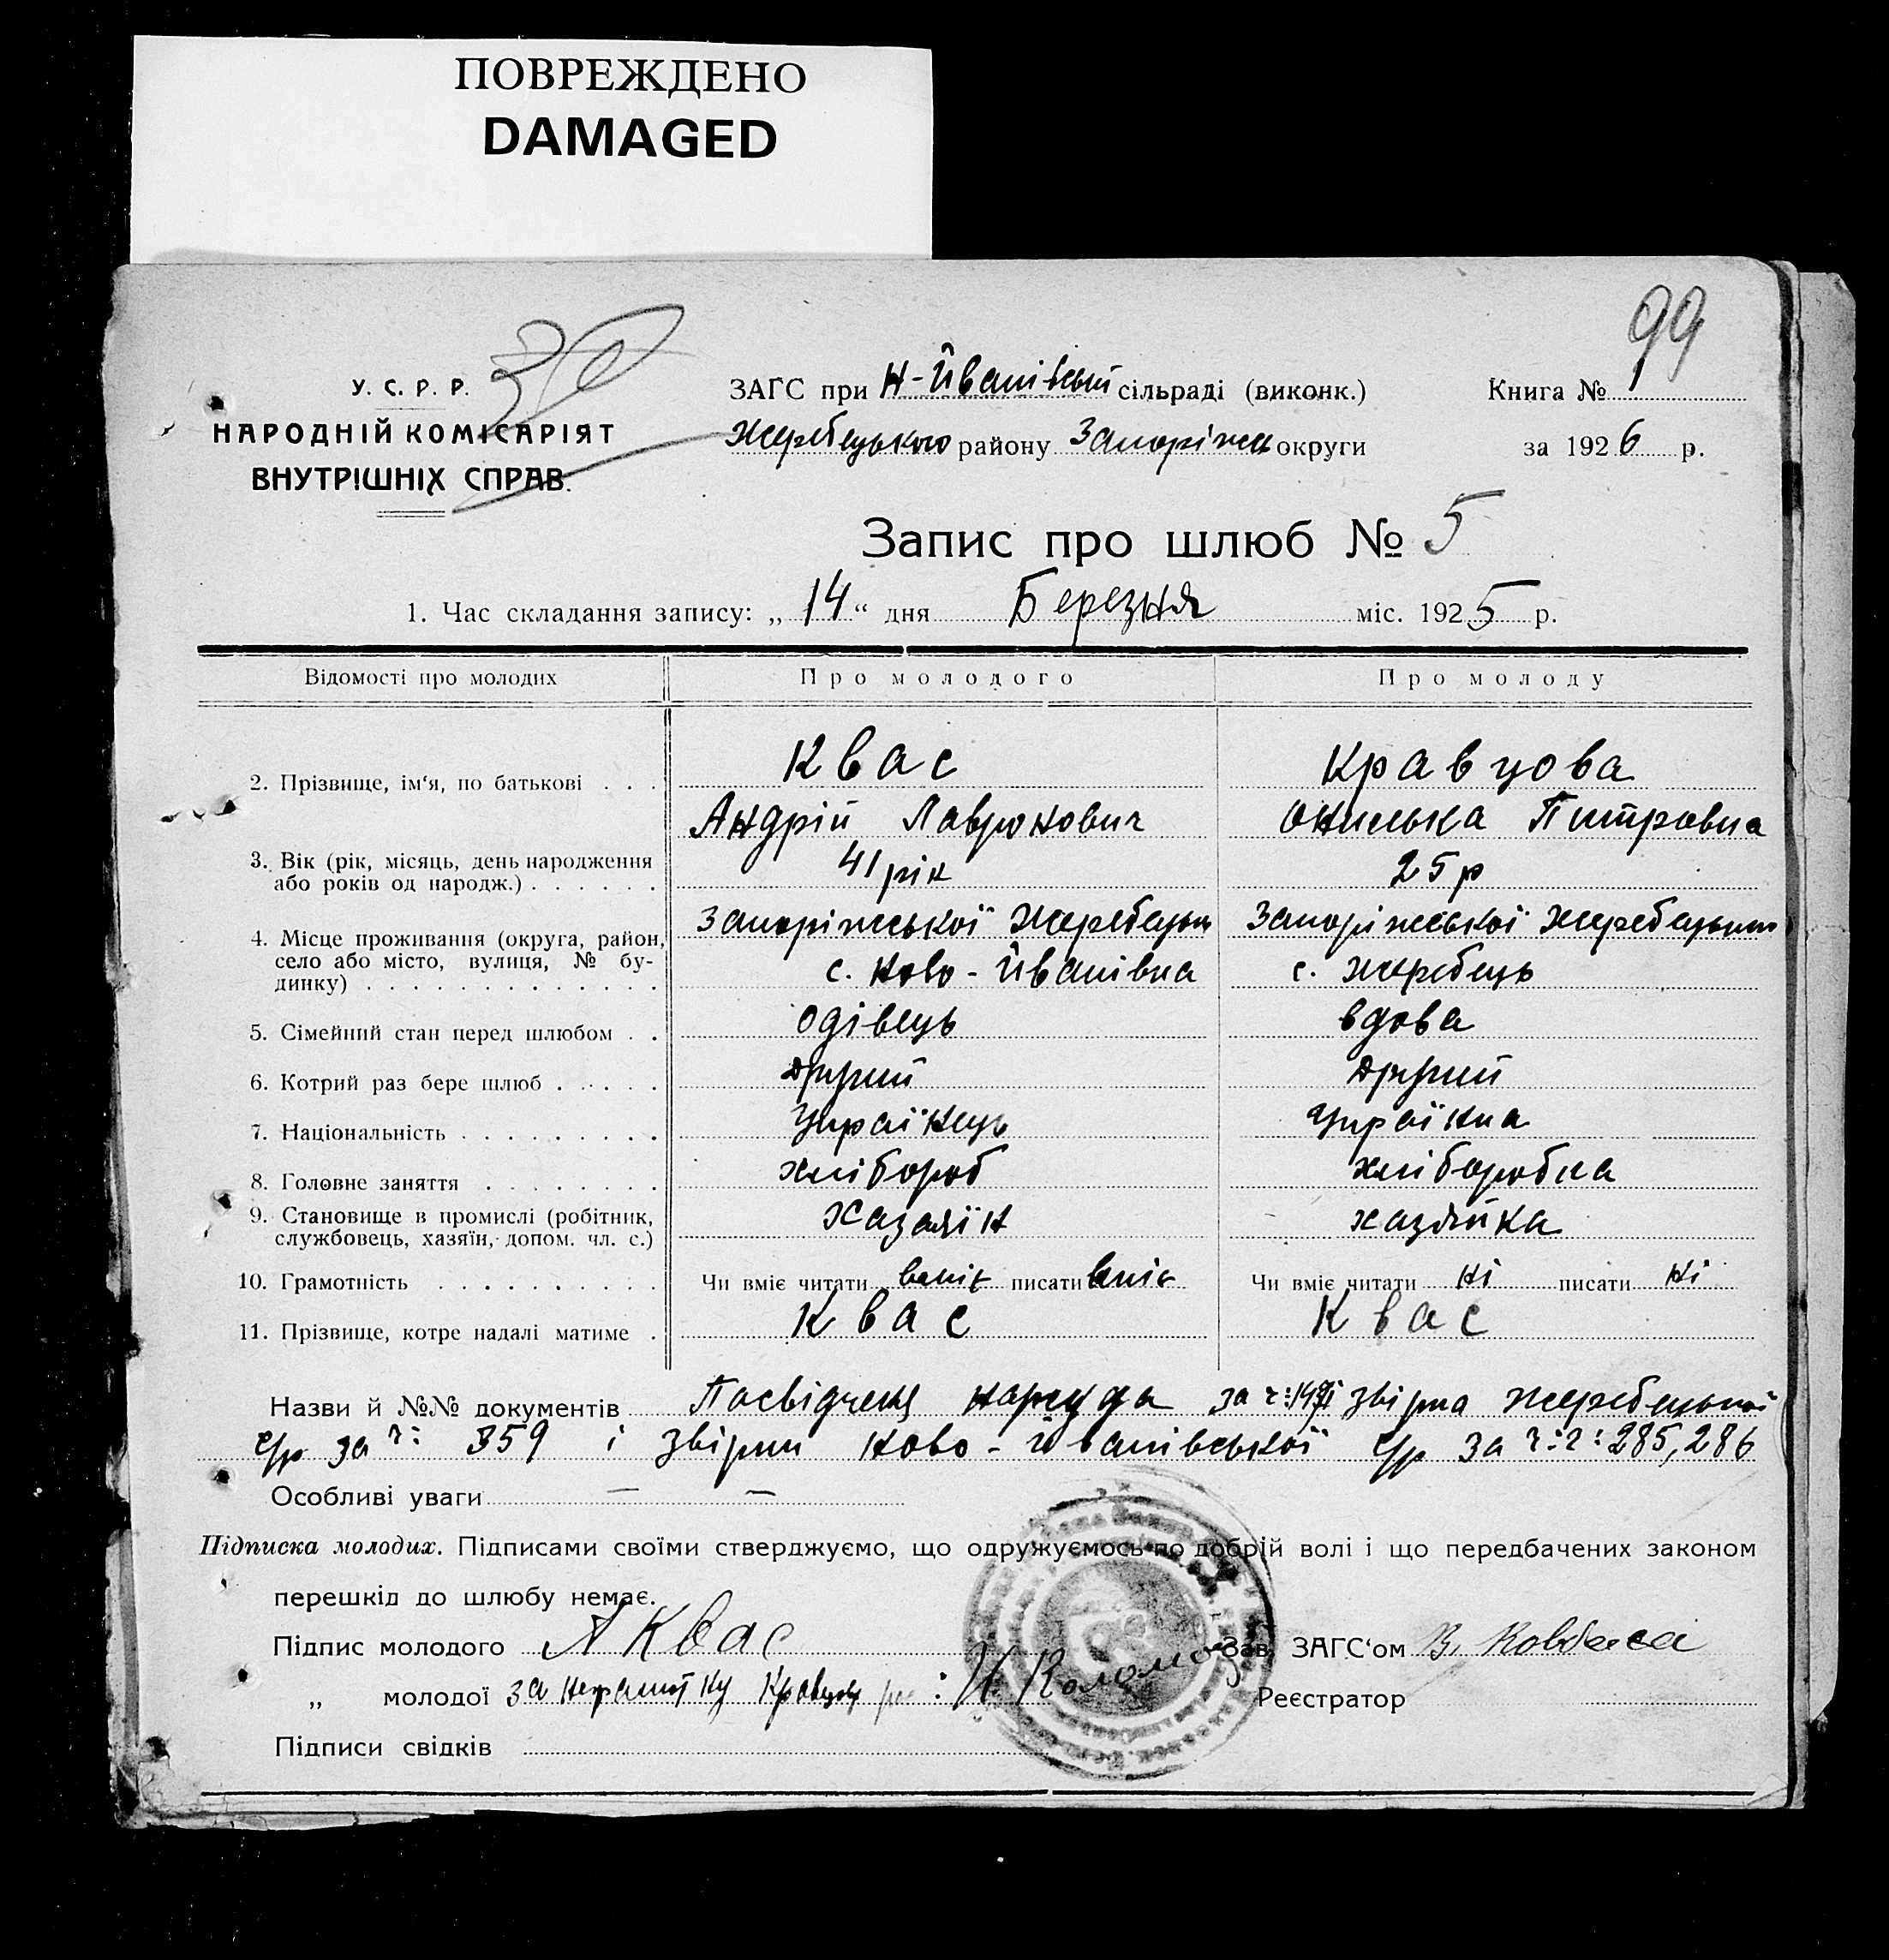 ПОВРЕЖДЕНО
DAMAGED
99
У. С. Р. Р.
НАРОДНІЙ КОМІСАРІЯТ
ВНУТРІШНІХ СПРАВ.
ЗАГС при Н-Йванівській сільраді (виконк.)
Жеребецького району Запоріжсь округи
Книга № 1
за 1926 р.
Запис про шлюб № 5
1. Час складання запису: „ 14 “ дня Березня міс. 1925 р.
Відомості про молодих Про молодого Про молоду
2. Прізвище, ім'я, по батькові . . . Квас Кравцова
Андрій Лавронович Онилька Питровна
3. Вік (рік, місяць, день народження
або років од народж.) . . . . . . 41 рік 25 р
4. Місце проживання (округа, район,
село або місто, вулиця, № бу-
динку) . . . . . . . . . . . . .
Запоріжської Жеребецьк Запоріжської
с. Ново-Йванівка с. Жеребець
5. Сімейний стан перед шлюбом . . Одівець вдова
6. Котрий раз бере шлюб . . . . . другий другий
7. Національність . . . . . . . . . Українець Українка
8. Головне заняття . . . . . . . . хлібороб хліборобка
9. Становище в промислі (робітник,
службовець, хазяїн, допом. чл. с.) Хазаяїн хазяйка
10. Грамотність . . . . . . . . . . Чи вміє читати вміє писати вміє Чи вміє читати ні писати ні
11. Прізвище, котре надалі матиме . Квас Квас
Назви й №№ документів Посвідченя нарсуда за ч: звірка Жеребецької
с/р за ч: 359 і звірки Ново-Йванівської с/р за ч:ч: 285, 286
Особливі уваги — —
Підписка молодих. Підписами своїми стверджуємо, що одружуємось по добрій волі і що передбачених законом
перешкід до шлюбу немає.
Підпис молодого А Квас Зав. ЗАГС‘ом В. Ковбаса
„ молодої за неграмотну Кравцову Реєстратор
Підписи свідків